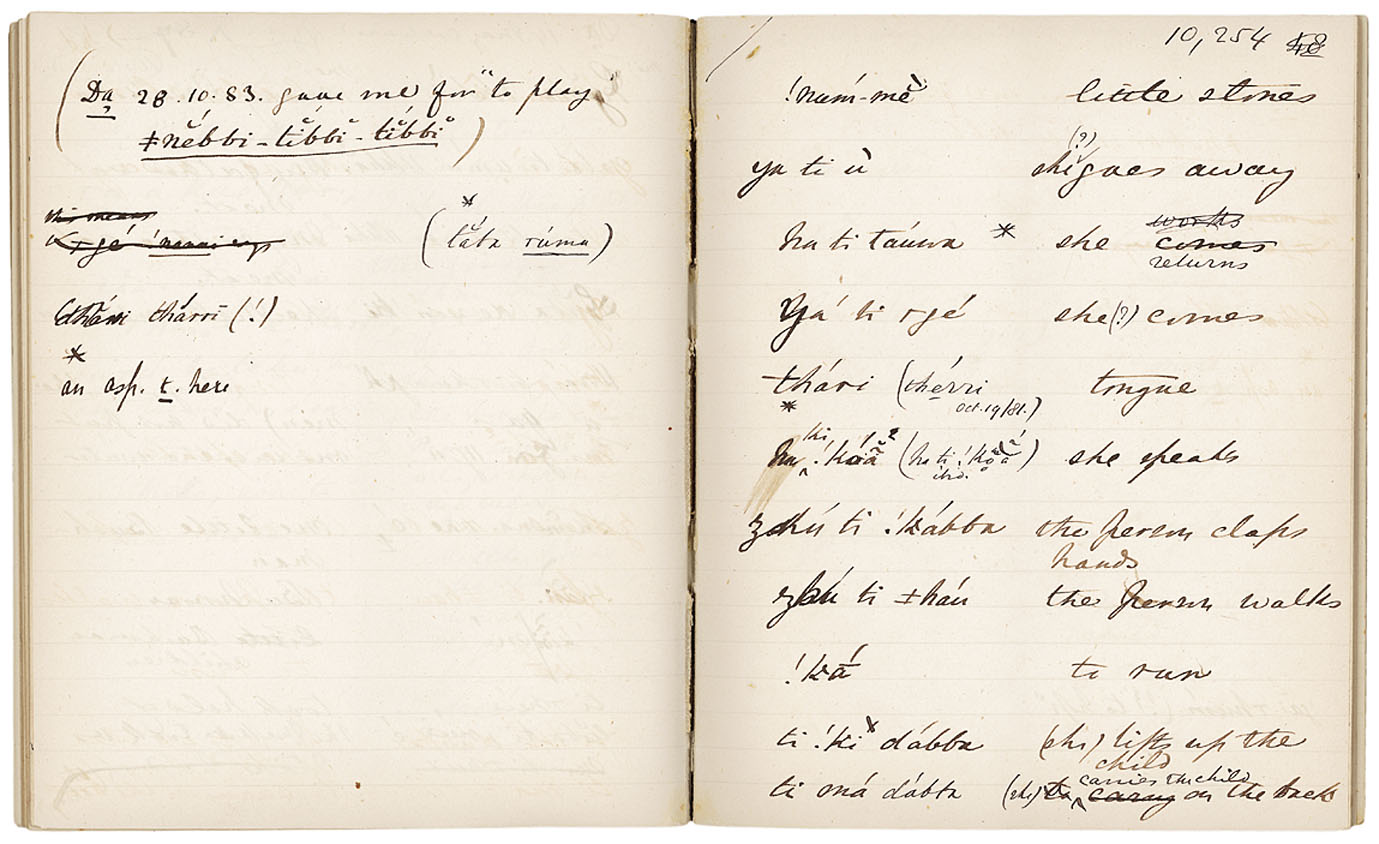 (Da 28.10.83. gave me for "to play"
ǂnĕbbi-tĭbbi-tĭbbi)
this means
(* tăba rúma)
thárri (!)
*
an asp. t. here
10,254 48
!núm-mĕ little stones
ya ti ù she (?) goes away
ha ti táuwa * she works comes returns
Yá ti ɤgé she (?) comes
thári (thérri Oct.19/81.) tongue
*
ha ki !kóã (ha ti !kóã ibid.) she speaks
zhú ti !kábba the person claps
hands
zhú ti ǂháu the person walks
!ká to run
ti !ki dábba (she) lifts up the
child
ti má dábba (she) carries the child carry on the back